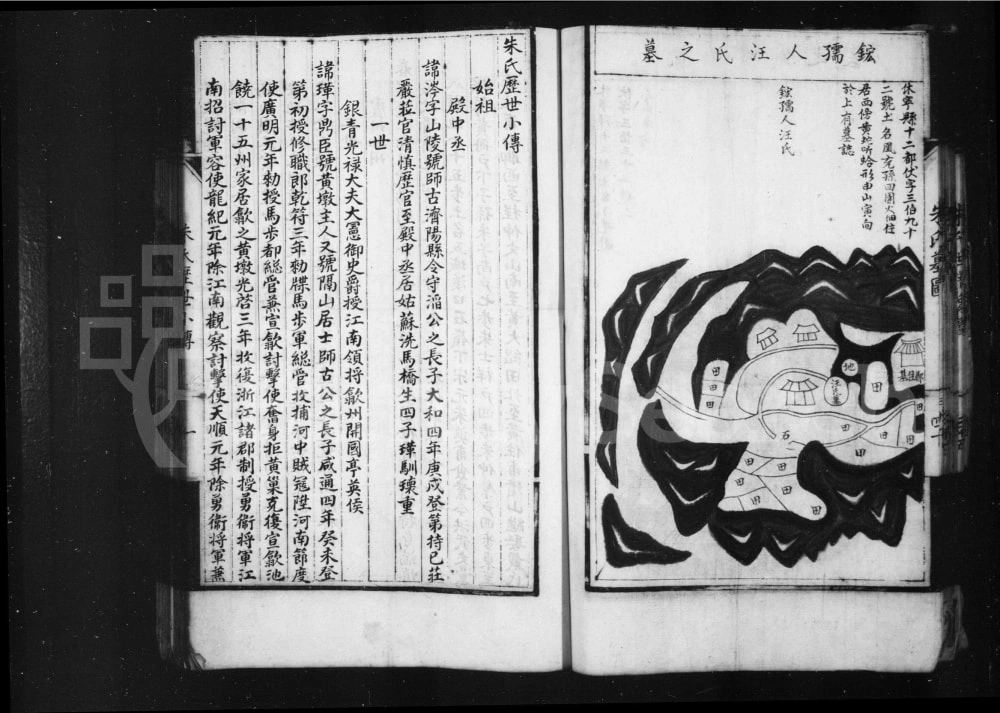 鋐孺人汪氏之墓
休寧縣十二都伏字三伯九十
二號土名鳳充孫田園火佃住
君西傍黃地吟蛤形由山寅向
於上有墓誌
鋐孺人汪氏
地
田
石
朱氏墓圖
朱氏歷世小傳
始祖
殿中丞
諱涔字山陵號師古濟陽縣令守湽公之長子大和四年庚戍登第持已莊
嚴蒞官清慎歷官至殿中丞居姑蘇洗馬橋生四子瑋馴瓌重
一世
銀青光禄大夫大憲御史爵授江南領將歙州開國亭英侯
諱瑋字鼎臣號黃墩主人又號隔山居士師古公之長子咸通四年癸未登
第初授修職郎乾符三年勅牒馬步軍総管攻捕河中賊冦陞河南節度
使廣明元年勅授馬步都総管兼宣歙討擊使奮身拒黃巢克復宣歙池
饒一十五州家居歙之黃墩光啓三年收復浙江諸郡制授勇衛將軍江
南招討軍容使龍紀元年除江南觀察討擊使天順元年除勇衛將軍兼
朱氏歷世小傳
一